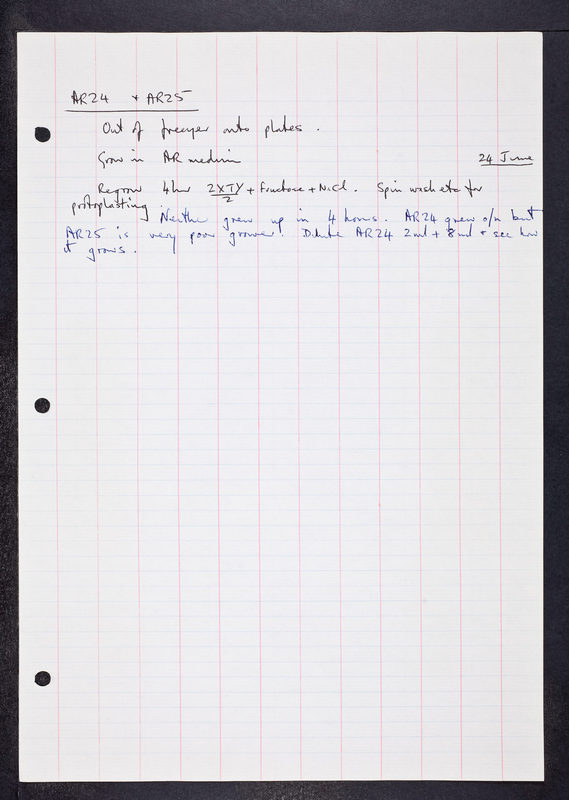 AR24 + AR25
Out of freezer onto plates.
Grow in AR medium
24 June
Regrow 4hr 2XTY/2 + fructose + NaCl. Spin wash etc for
protoplasting.
Neither grew up in 4 hours. AR24 grew o/n but
AR25 is very poor grower. Dilute AR24 2ml + 8ml + see how
it grows.